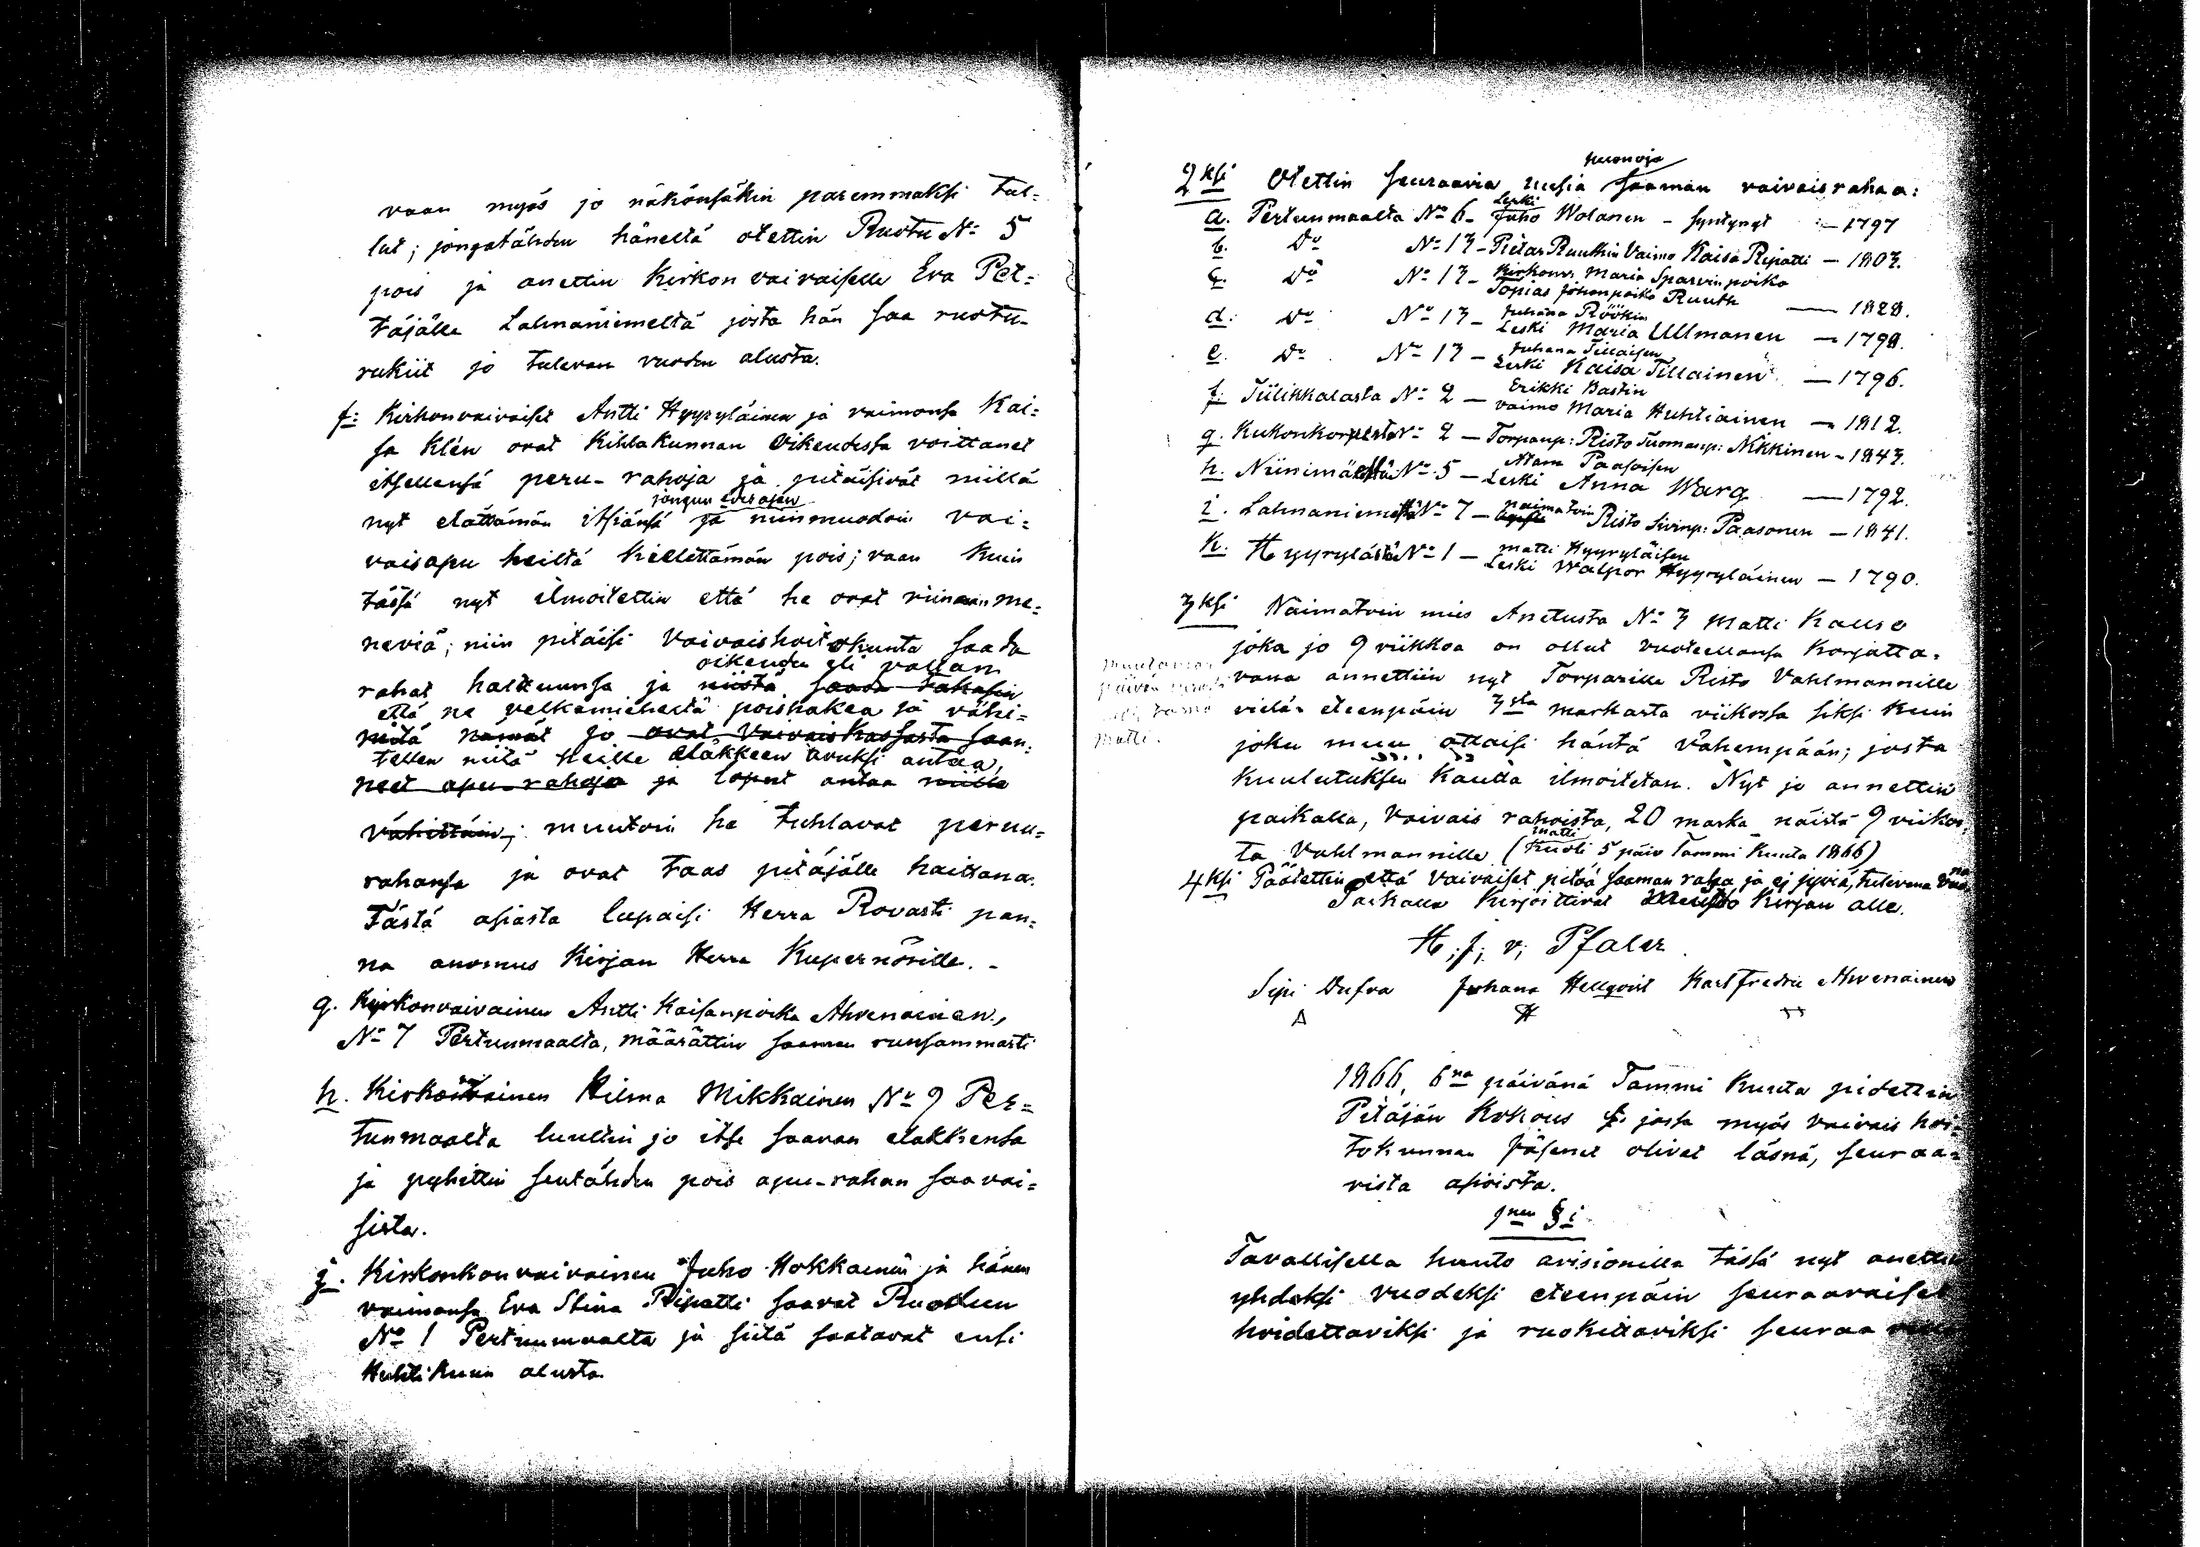 vaan myös jo näkönsäkin paremmaksi tul=
lut; jongatähden häneltä otettin Ruotu No 5
pois ja anettin Kirkon vaivaiselle Eva Pet=
täjälle Lahnaniemeltä josta hän saa ruotu-
rukiit jo tulevan vuoden alusta.
f: Kirkonvaivaiset Antti Hyyryläinen ja vaimonsa Kai=
sa Klén ovat Kihlakunnan Oikeudessa voittanet
itsellensä peru-rahoja ja pitäisivät niillä
jongun
nyt elättämän itsiänsä ja niinmuodoin vai=
vaisapu heiltä kiellettämän pois; vaan kuin
tässä nyt ilmoitettin että he ovat viinaan me=
neviä; niin pitäisi Vaivaishoitokunta saada
oikeuden eli vallan
rahat haltuunsa ja niistä saada takasin
että ne velkamieheltä poishakea ja vähi=
mitä nämät jo ovat Vaivaiskassasta saa=
tellen niitä heille eläkkeen avuksi antaa,
neet apu-rahoja ja loput antaa niille
vähittäin; muutoin he tuhlavat peruu=
rahansa ja ovat taas pitäjälle haittana.
Tästä asiasta lupaisi Herra Rovasti pan=
na anomus Kirjan Herra Kupernörille. -
g. Kirkonvaivainen Antti Kaisanpoika Ahvenainen,
No 7 Pertunmaalta, määrättin saaman runsammasti
h. Kirkonvainen Hilma Mikkainen No 9 Per=
tunmaalta luultin jo itse saavan elakkensa
ja pyhittin sentähden pois apu-rahan saavai=
sista.
j. Kirkonkonvaivainen Juho Hokkanen ja hänen
vaimonsa Eva Stina Ripatti saavat Ruodun
No 1 Pertunmaalta ja siitä saatavat ensi
Huhtikuun alusta
2ksi Otettin seuraavia uusia saaman vaivaisrahaa:
a. Pertunmaalta No 6 - Leski Juho Wolanen - syntynyt - 1797
b. Do No 13 - Pietar Ruuthin Vaimo Kaisa Ripatti - 1803.
c. Do No 13 - Kirkonv: Maria Sparvin poika
Topias Johanpoika Ruuth - 1828.
d. Do No 13 - Juhana Röökin
Leski Maria Ullmanen - 1798.
e. Do No 13 - Juhana Tillaisen
Leski Kaisa Tillainen - 1796.
f. Tiilikkalasta No 2 - Erikki Bastin
vaimo Maria Huhtiainen - 1812.
g. Kukonkorvesta No 2 - Torpanp: Risto Tuomasp: Nikkinen - 1843.
h. Niinimäeltä No 5 - Atam Paasoisen
Leski Anna Warg - 1792.
i. Lahnaniemeltä No 7 - naimatoin Risto Sivinp: Paasonen - 1841.
k. Hyyrylästä No 1 - Matti Hyyryläisen
Leski Walpor Hyyryläinen - 1790.
3ksi Naimatoin mies Anetusta No 3 Matti Kause
joka jo 9 viikkoa on ollut vuoteellansa korjatta-
vana annettiin nyt Torparille Risto Vahlmannille
vielä eteenpäin 3sta markasta viikossa siksi kuin
matti.
joku muu ottaisi häntä vähempään; josta
kuulutuksen kautta ilmoitetan. Nyt jo annettin
paikalla, vaivais rahoista, 20 marka näistä 9 viikos=
ta Vahlmannille (Matti kuoli 5 päiv Tammi kuuta 1866)
4ksi Päätettin että Vaivaiset pitää saaman rahaa ja ej jyviä, tulevana vuo
Paikalla kirjoittivat Kirjan alle.
H. J. v. Pfaler
Sipi Dufva Juhana Hellqvist Karl Fredric Ahvenainen
1866, 6na päivänä Tammi kuuta pidettin
Pitäjän Kokous jossa myös vaivais hoi=
tokunnan jäsenet olivat läsnä, seuraa=
vista asioista.
1nen § i
Tavallisella huuto avisionilla tässä nyt anettin
yhdeksi vuodeksi eteenpäin seuraavaiset
hoidettaviksi ja ruokittaviksi seuraa